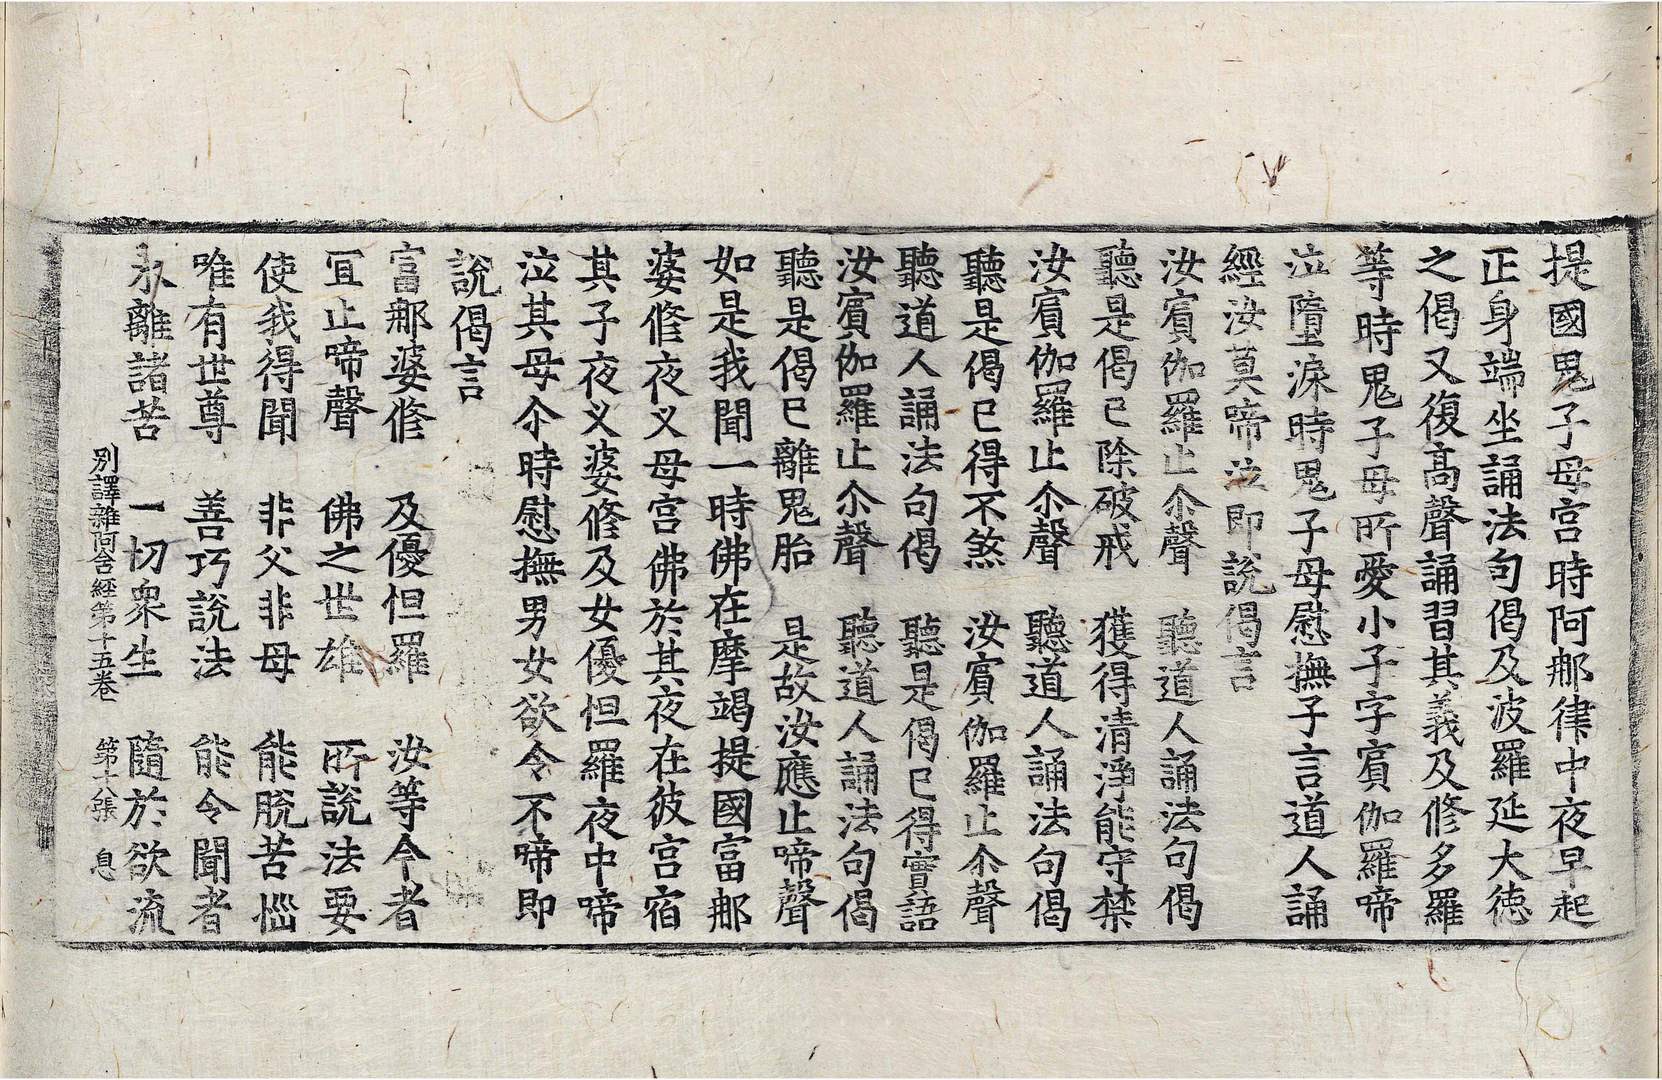 提國鬼子母宮時阿那律中夜早起
正身端坐誦法句偈及波羅延大徳
之偈又復高聲誦習其義及修多羅
等時鬼子母所愛小子字賔伽羅啼
泣墮淚時鬼子母慰撫子言道人誦
經汝莫啼泣即說偈言
汝賔伽羅止尒聲　聽道人誦法句偈
聽是偈已除破戒　獲得清淨能守禁
汝賔伽羅止尒聲　聽道人誦法句偈
聽是偈已得不煞　汝賔伽羅止尒聲
聽道人誦法句偈　聽是偈已得實語
汝賔伽羅止尒聲　聽道人誦法句偈
聽是偈已離鬼胎　是故汝應止啼聲
如是我聞一時佛在摩竭提國富那
婆修夜叉母宮佛於其夜在彼宮宿
其子夜叉婆修及女優怛羅夜中啼
泣其母尒時慰撫男女欲令不啼即
說偈言
富那婆修　及優怛羅　汝等今者
冝止啼聲　佛之世雄　所說法要
使我得聞　非父非母　能脫苦惱
唯有世尊　善巧說法　能令聞者
永離諸苦　一切衆生　隨於欲流
別譯雜阿含經第十五卷　第十八張　息